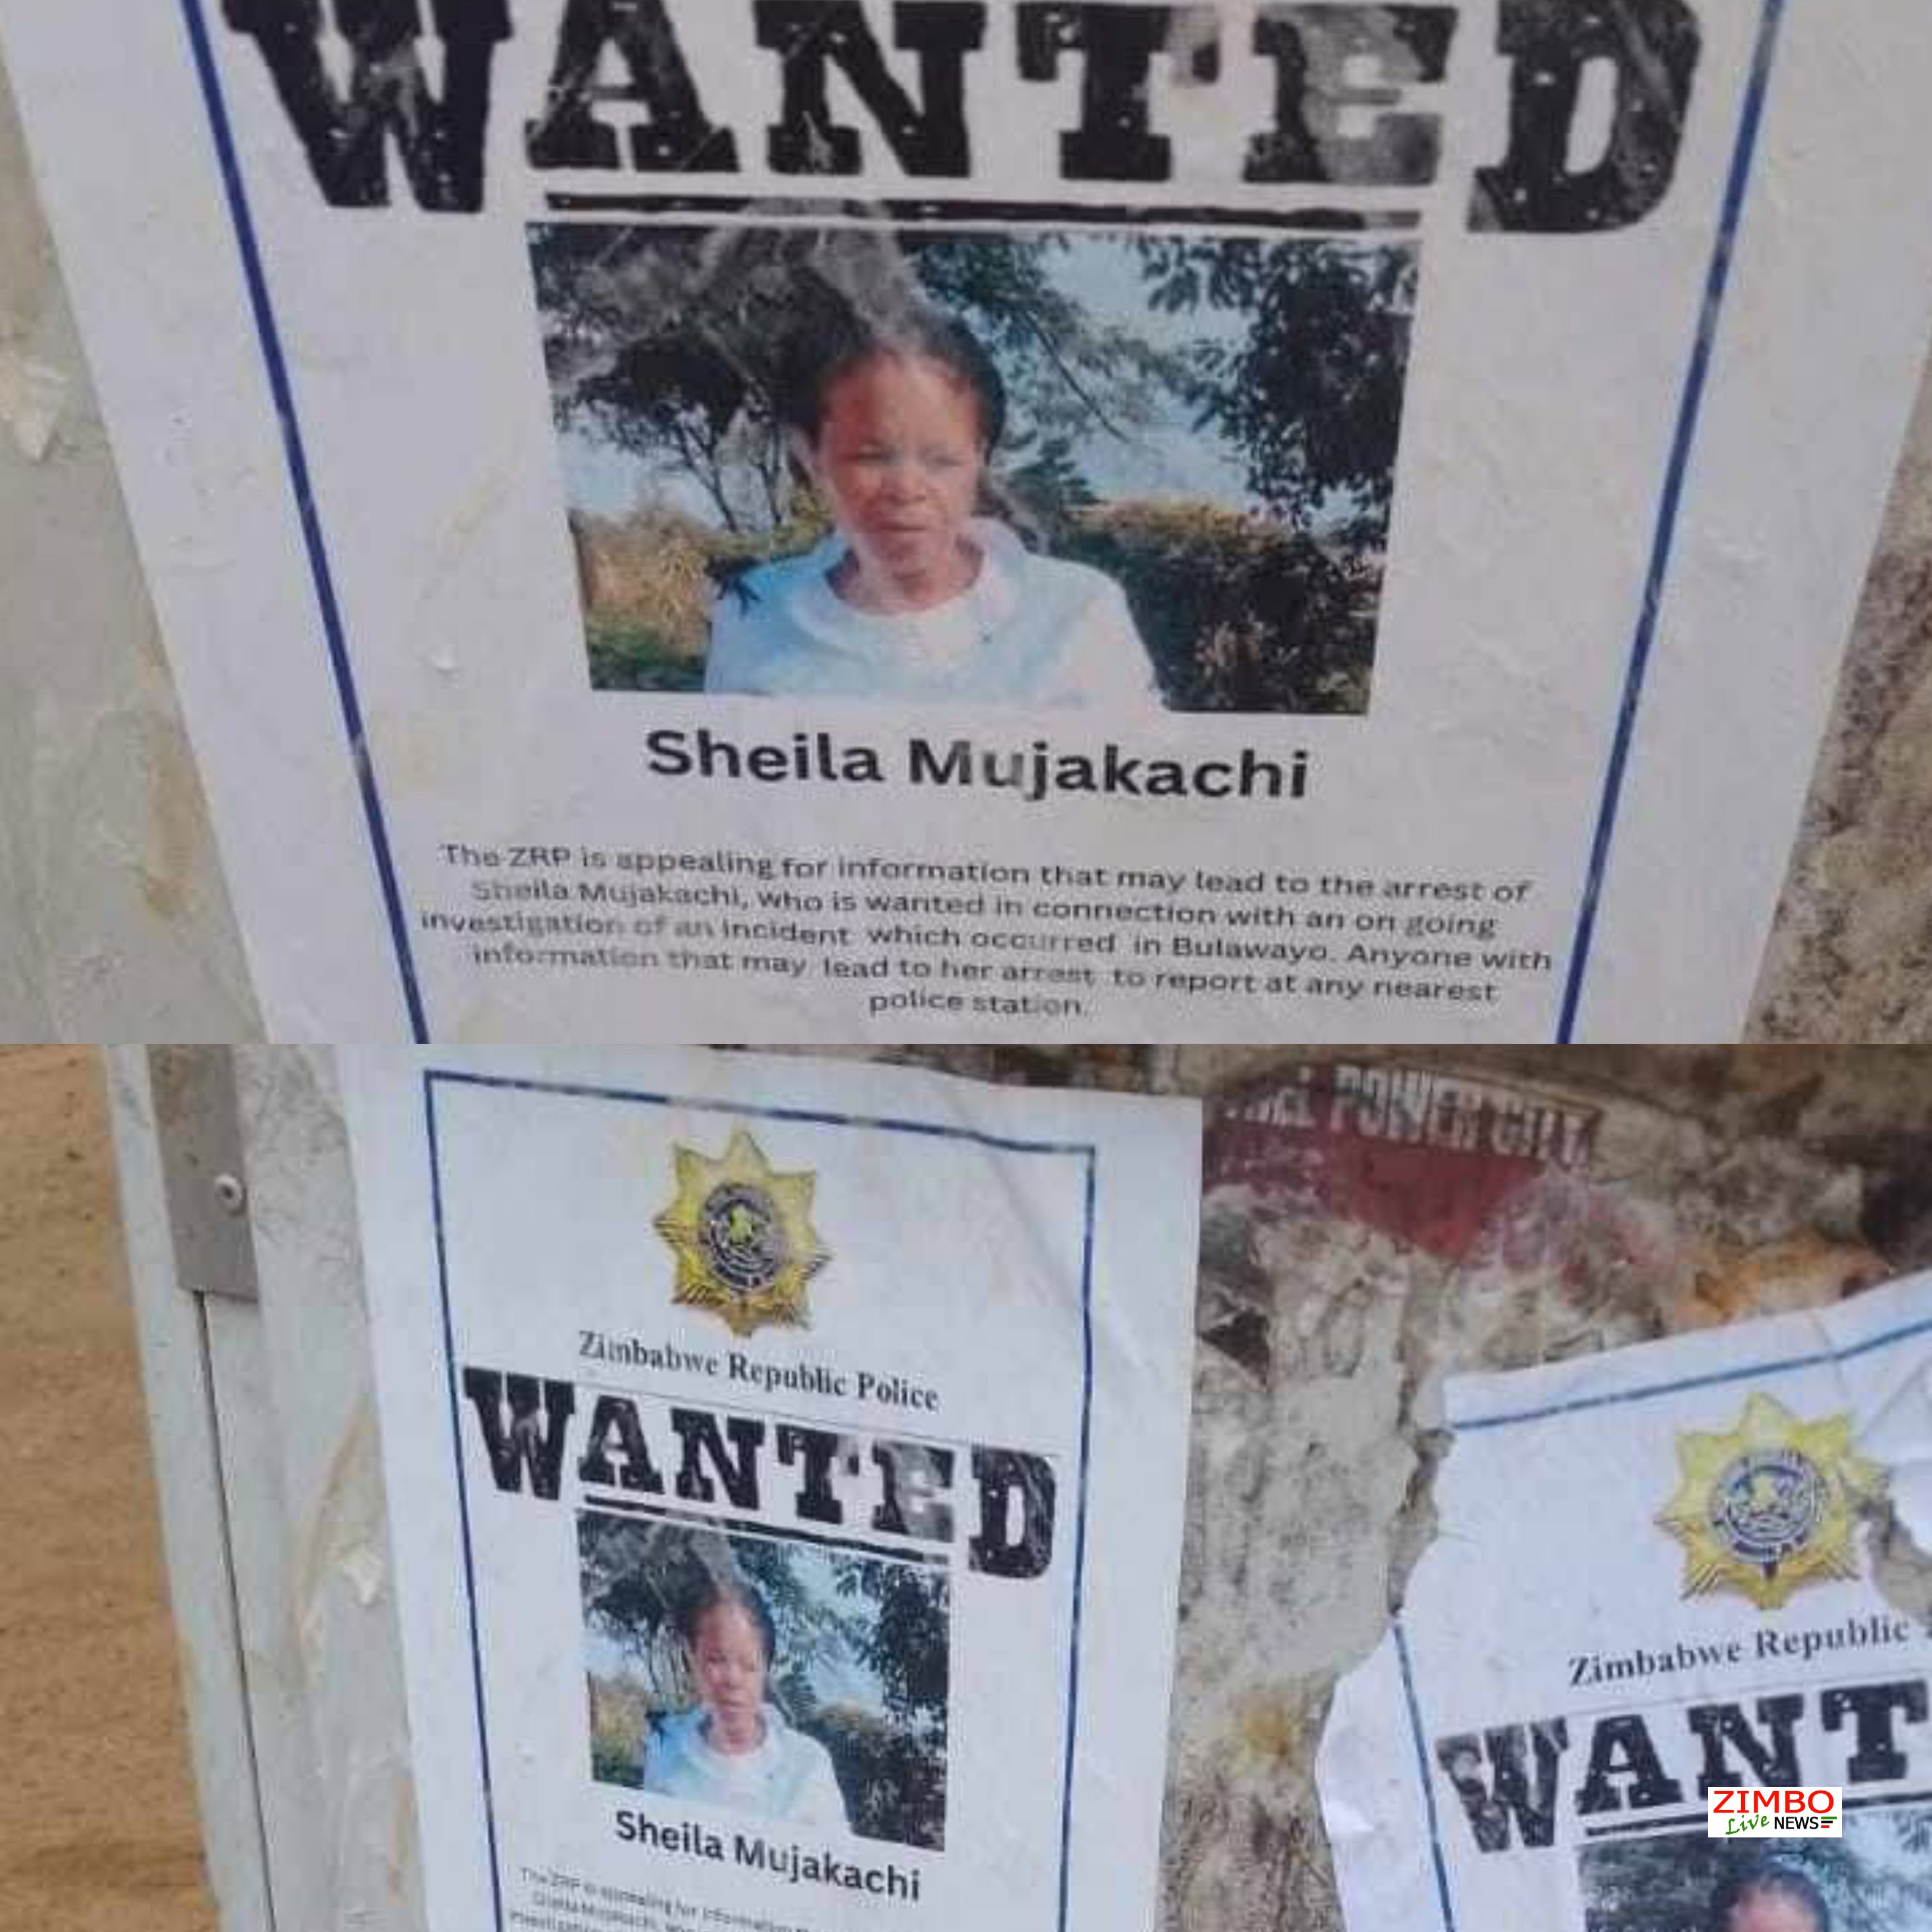 WANTED
Sheila Mujakachi
The ZRP is appealing for information that may lead to the arrest of
Sheila Mujakachi, who is wanted in connection with an on going
investigation of an incident which occurred in Bulawayo. Anyone with
information that may lead to her arrest to report at any nearest
police station.
POWER
Zimbabwe Republic Police
WANTED
Sheila Mujakachi
The ZRP is appealing for information
Sheila Mujakachi,
investigation
Zimbabwe Republic
WANT
ZIMBO
Live NEWS